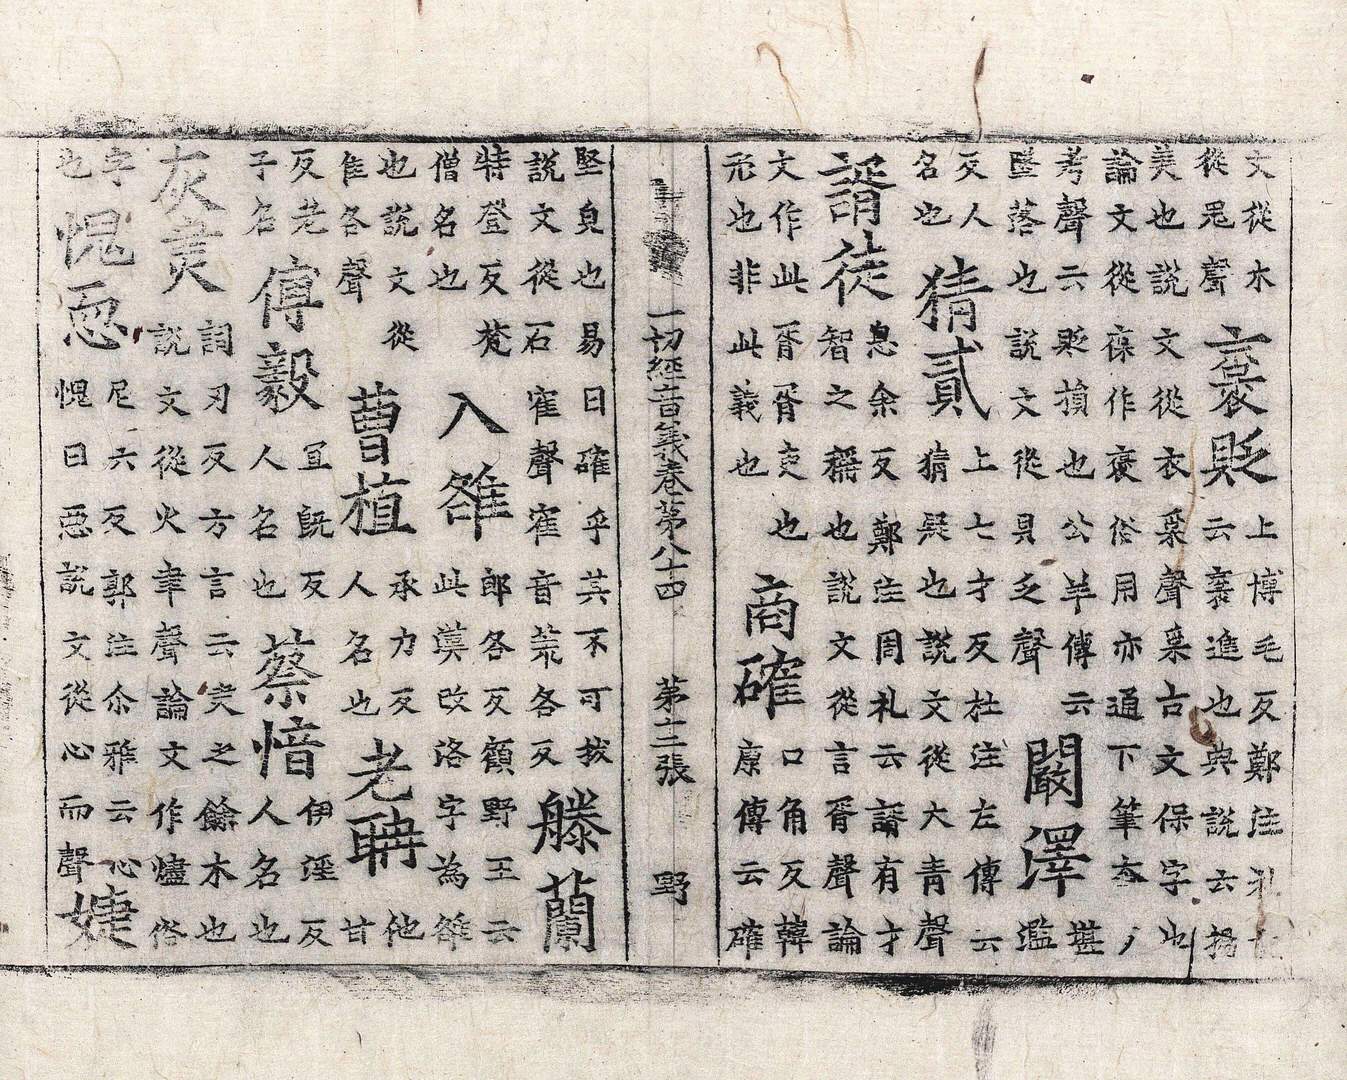 文從木
從㲋聲
褒貶
上博毛反鄭注礼記
云褒進也典説云揚
美也説文從衣采聲采古文保字也
論文從保作褒俗用亦通下筆
考聲云貶損也公羊傳云
墜落也說文從貝乏聲
闞澤
堪
濫
反人
名也
猜貳
上七才反杜注左傳云
猜疑也說文從犬青聲
諝徒
息余反鄭注周礼云諝有才
智之稱也說文從言胥聲論
文作此胥胥吏也
形也非此義也
商確
口角反韓
康傳云確
一切經音義卷苐八十四 苐十二張 野
堅皃也易曰確乎其不可拔
說文從石隺聲隺音荒各反
滕蘭
特登反梵
僧名也
入雒
郎各反顧野王云
此漢改洛字為雒
也說文從
隹各聲
曹植
承力反
人名也
老聃
他
甘
反老
子名
傅毅
宜既反
人名也
蔡愔
伊淫反
人名也
灰㶳
詞刃反方言云㶳之餘木也
説文從火聿聲論文作燼俗
字
也
愧恧
尼六反郭注尒雅云心
愧曰恧説文從心而聲
婕